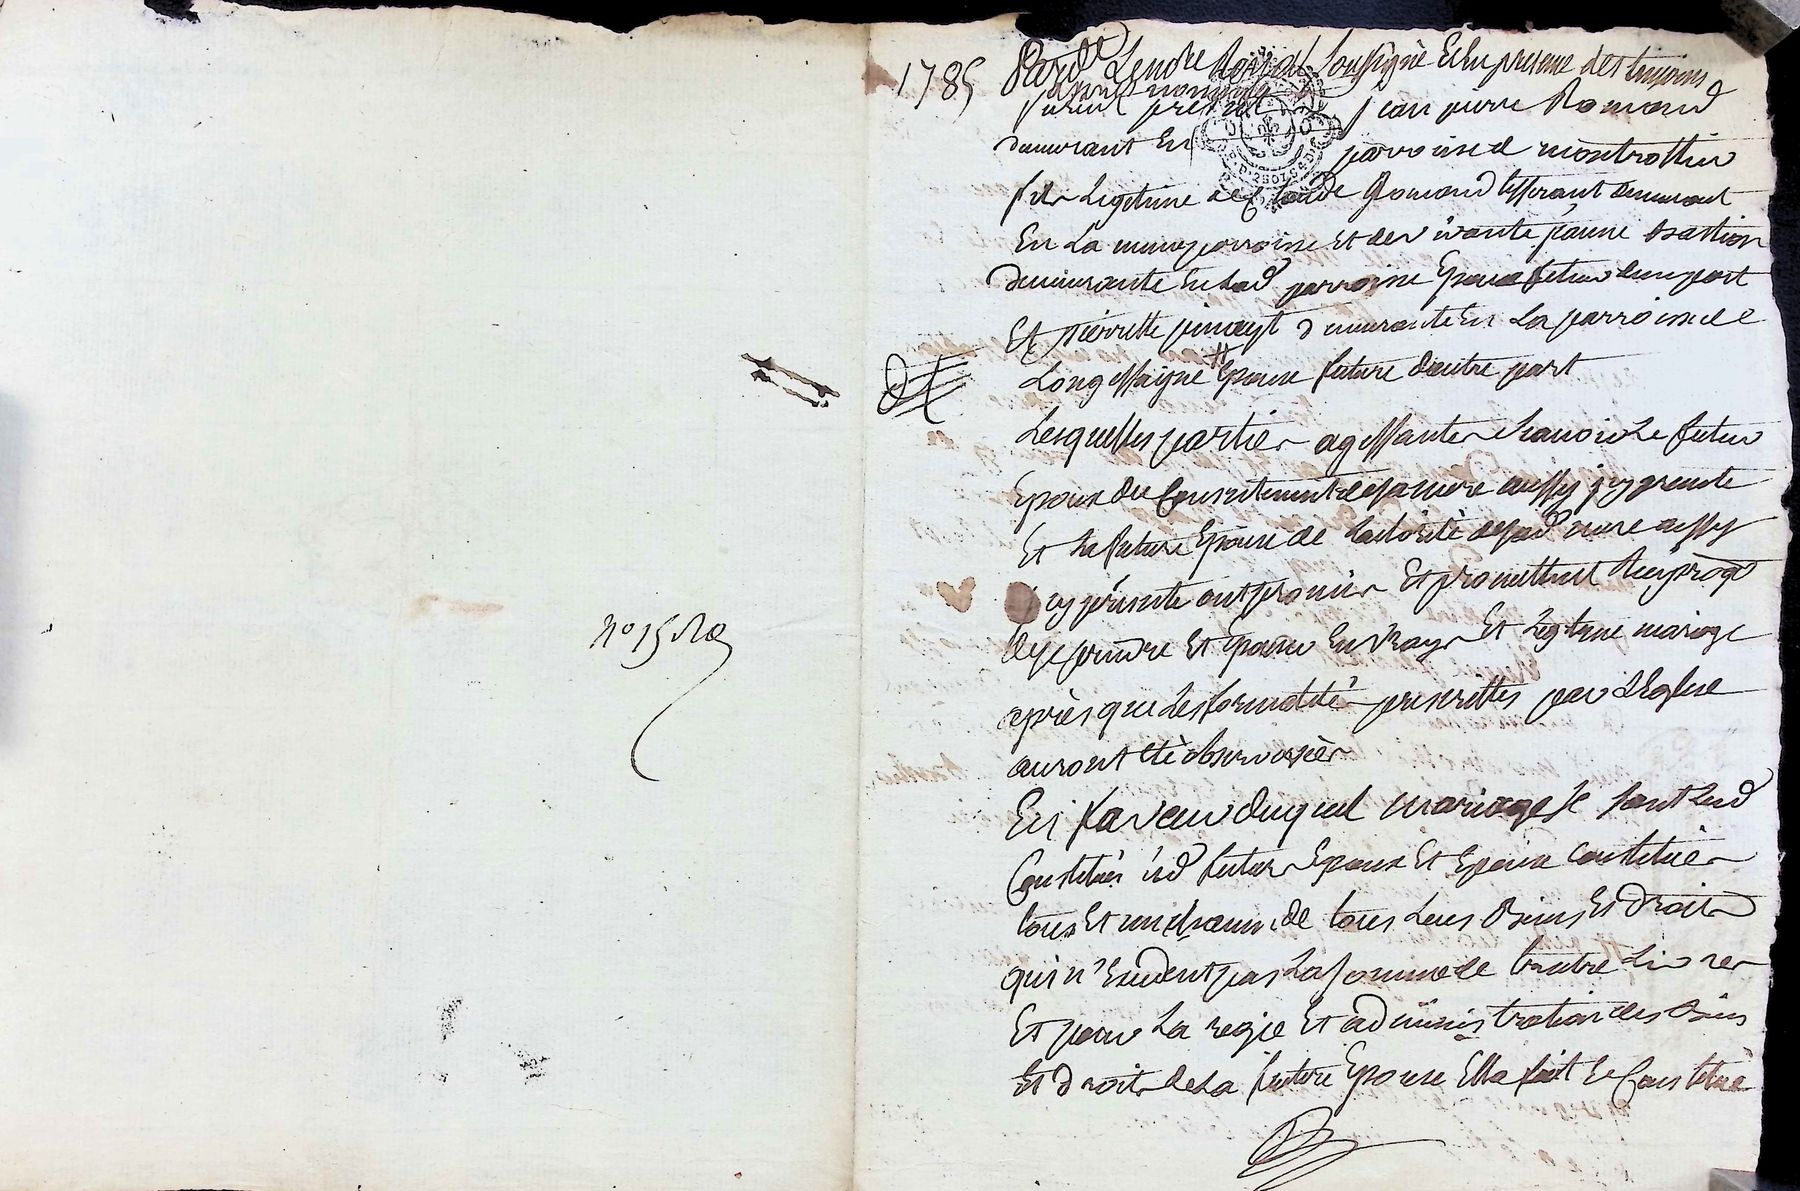 1785
Pard.t Le notre Royal Soussigné Et En presence des temoins
furent présent jean pierre Romand
demurant En parroisse de montrottier
fils Legitime de Claude Romand tisserant demurant
En La meme parroisse Et de vivante janne bastion
demeurante En lad parroisse Epoux futur d'une part
Et pierrette pinayt demeurante En La parroisse de
Longessaigne Epouse future d'autre part
Lesquelles parties agissantes sçavoir Le futur
Epoux du Consentement de sa mere aussy jcy presente
Et La future Epouse de Lautorité de sad mere aussy
jcy présente ont promis Et promettent Reciproq
de se joindre Et Epouser En vray Et Legitime mariage
après que Les formalités prescrittes par L'Eglise
auront été observées
En faveur duquel mariage se sont Lesd
Constitués Lesd futurs Epoux Et Epouse Constitués
tous Et un chacun de tous Leurs Biens Et Droits
qui n'Excedent pas La somme de trente Livres
Et pour La regie Et administration des Biens
Et droits de La future Epouse Elle fait Et Constitue
n° 15